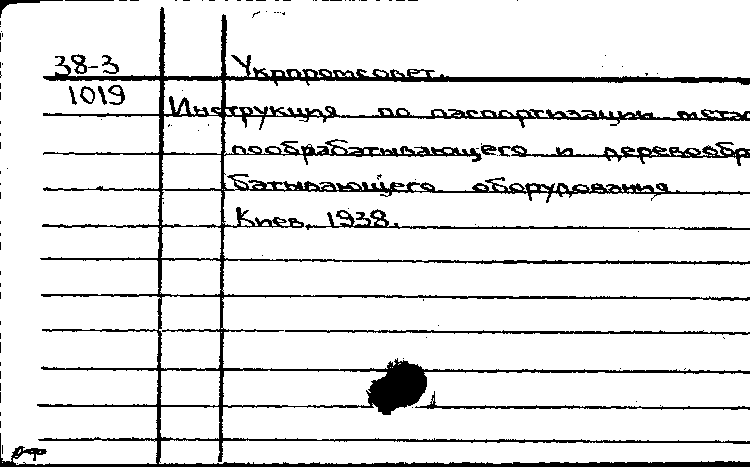 38-3 Укрпромсовет.
1019 Инструкция по паспортизации метал
лообрабатывающего и деревообра
батывающего оборудования.
Киев, 1938.